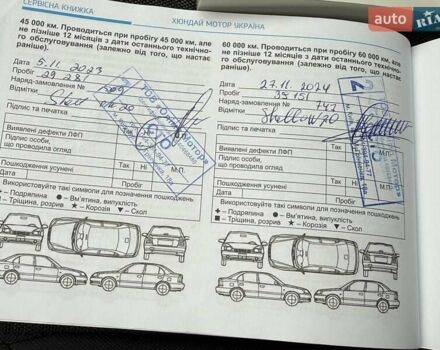 СЕРВІСНА КНИЖКА
ХЮНДАЙ МОТОР УКРАЇНА
45 000 км. Проводиться при пробігу 45 000 км, але
не пізніше 12 місяців з дати останнього технічно-
го обслуговування (залежно від того, що настає
раніше).
Дата 5.11.2023
Пробіг 29 281
Наряд-замовлення № 1509
Відмітки Shell
Підпис та печатка
М.П.
Виявлені дефекти ЛФП Так Ні
Підпис особи,
що проводила огляд
Пошкодження усунені
Дата Підпис
Використовуйте такі символи для позначення пошкоджень
Подряпина Вм'ятина, випуклість
Тріщина, розрив Корозія Скол
60 000 км. Проводиться при пробігу 60 000 км, але
не пізніше 12 місяців з дати останнього технічно-
го обслуговування (залежно від того, що настає
раніше).
Дата 27.11.2024
Пробіг 35 151
Наряд-замовлення № 742
Відмітки
Підпис та печатка
Виявлені дефекти ЛФП Так Ні
Підпис особи,
що проводила огляд
М.П.
Пошкодження усунені
Дата Підпис
Використовуйте такі символи для позначення пошкоджень
Подряпина Вм'ятина, випуклість
Тріщина, розрив Корозія Скол
AUTO RIA